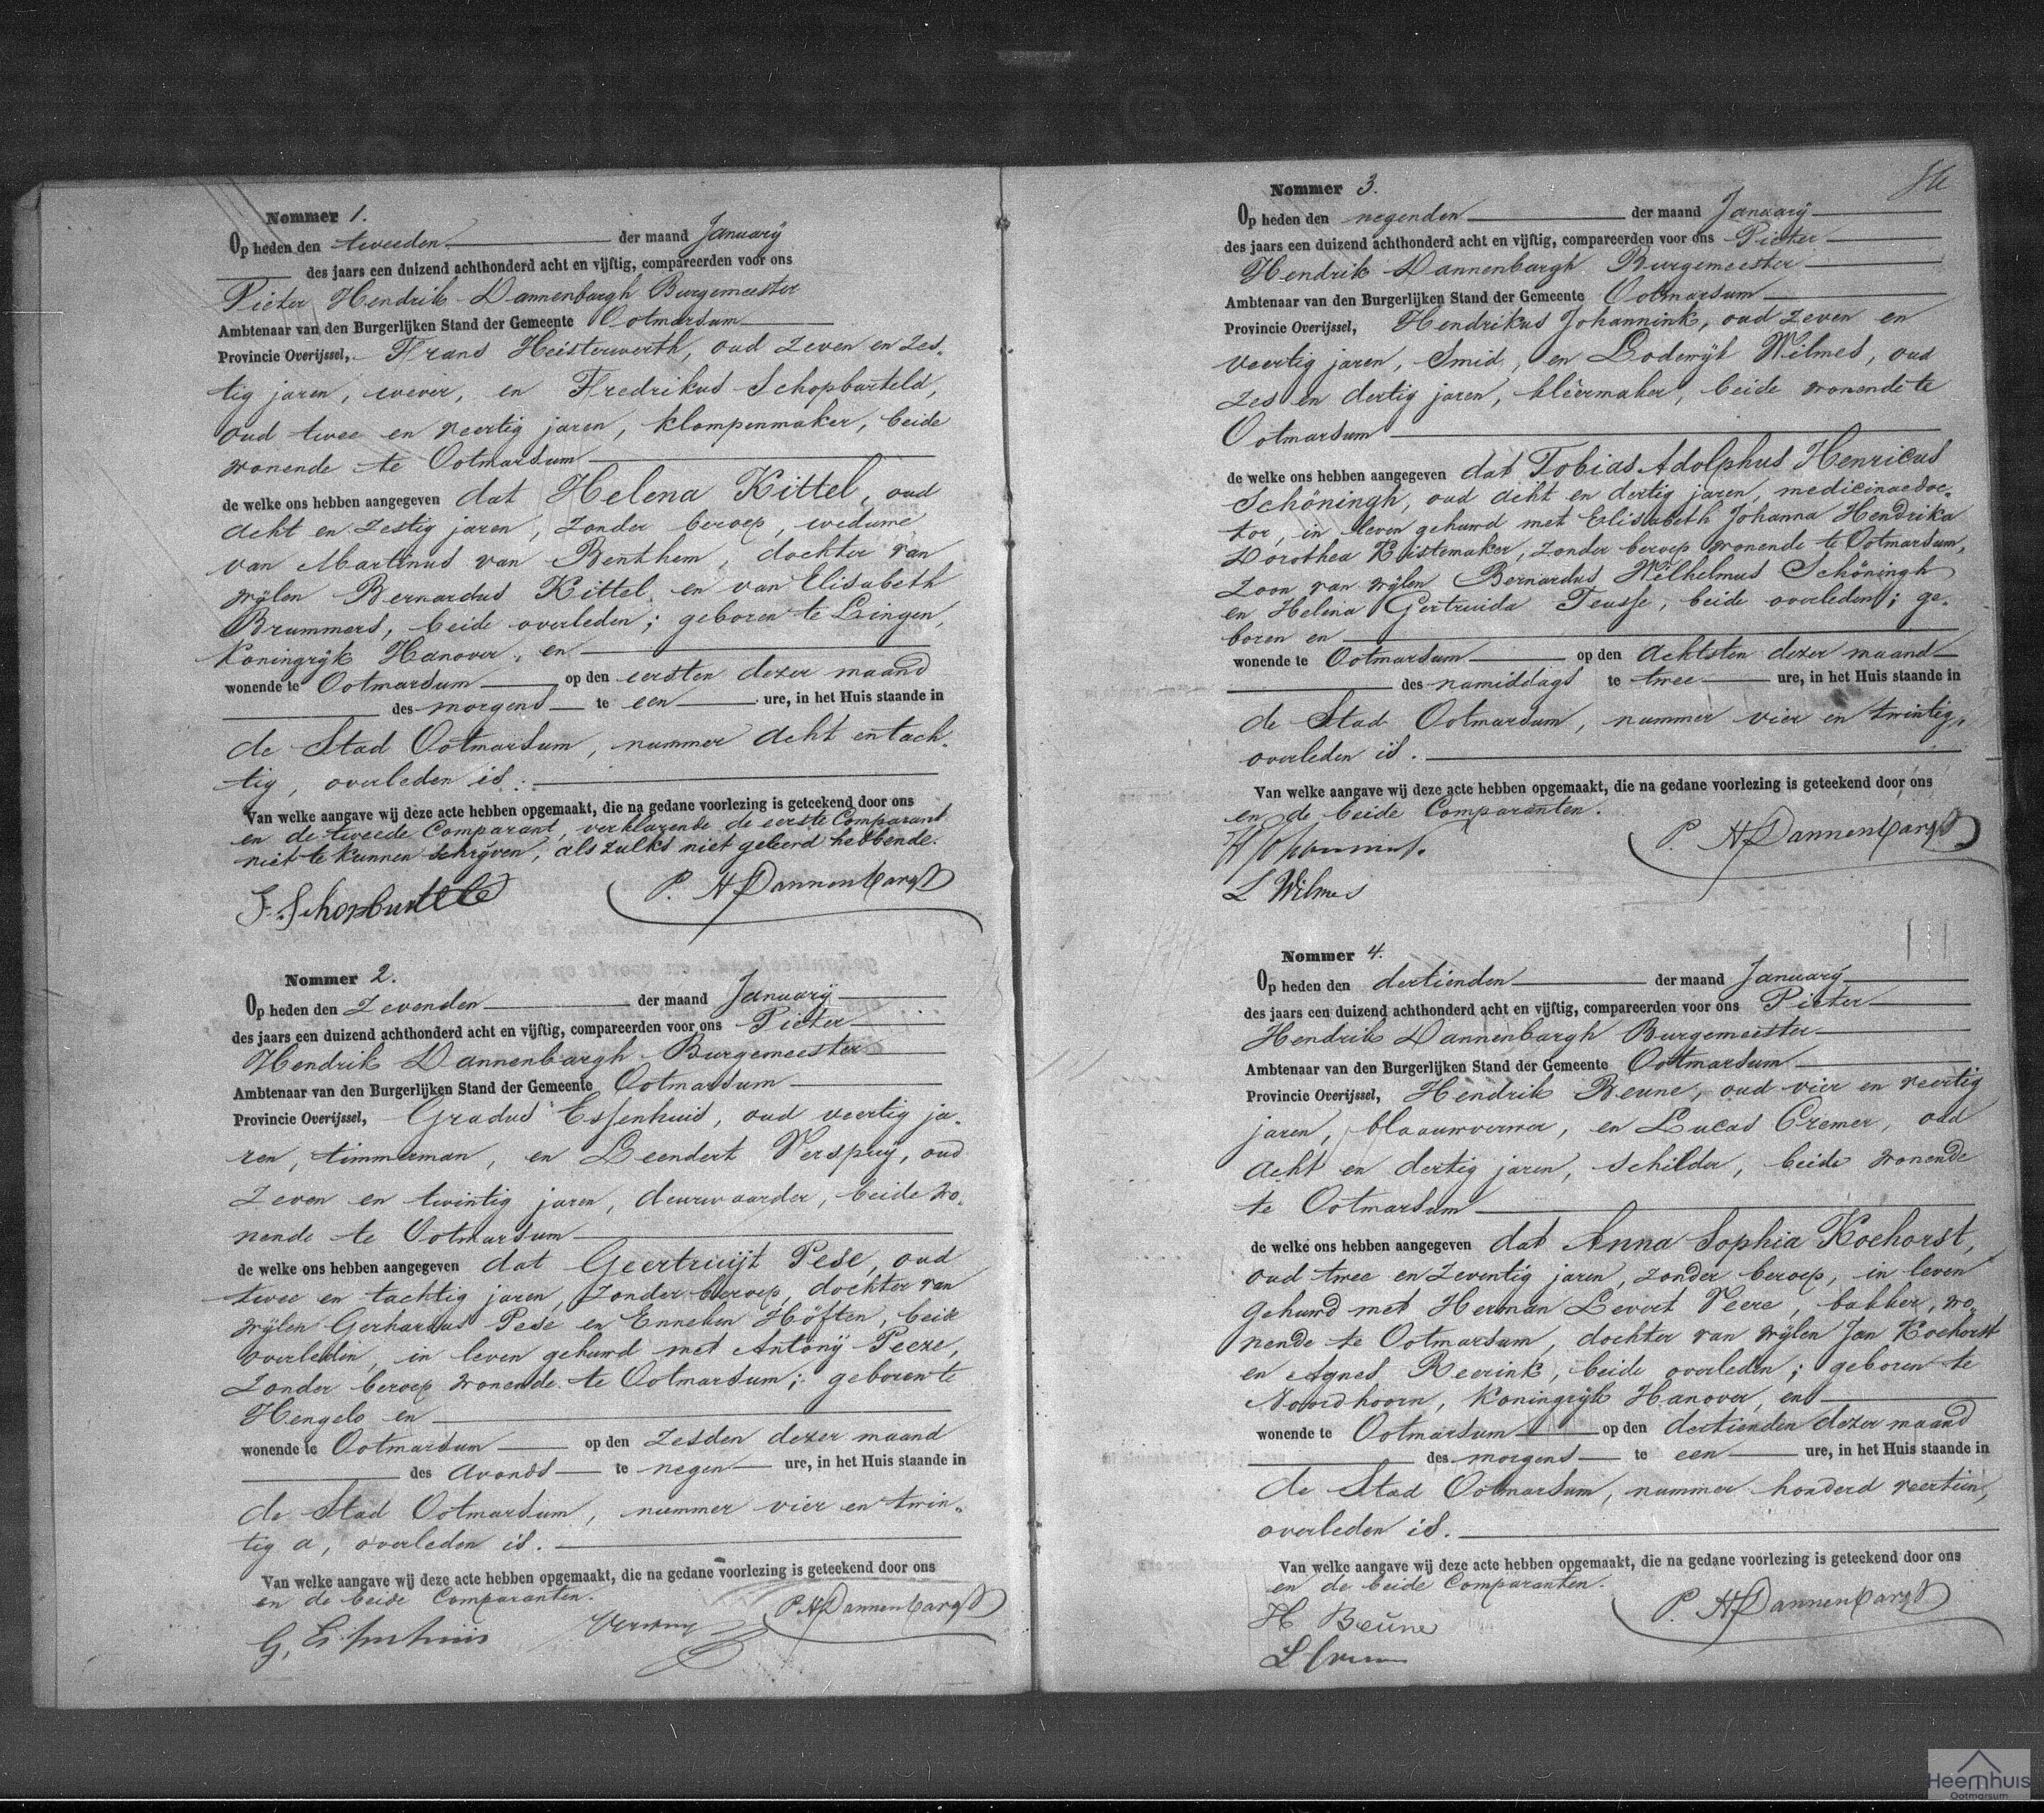 Nommer 1.
Op heden den tweeden der maand Januarij
des jaars een duizend achthonderd acht en vijftig, compareerden voor ons
Pieter Hendrik Dannenbargh Burgemeester
Ambtenaar van den Burgerlijken Stand der Gemeente Ootmarsum
Provincie Overijssel, Frans Heisterwerth, oud zeven en zes-
tig jaren, wever, en Fredrikus Schopbarteld,
oud twee en veertig jaren, klompenmaker, beide
wonende te Ootmarsum
de welke ons hebben aangegeven dat Helena Kittel, oud
acht en zestig jaren, zonder beroep, weduwe
van Martinus van Benthem, dochter van
wijlen Bernardus Kittel en van Elisabeth
Brummers, beide overleden; geboren te Lingen,
Koningrijk Hanover, en
wonende te Ootmarsum op den eersten dezer maand
des morgens te een ure, in het Huis staande in
de Stad Ootmarsum, nummer acht en tach-
tig, overleden is.
Van welke aangave wij deze acte hebben opgemaakt, die na gedane voorlezing is geteekend door ons
en de tweede Comparant, verklarende de eerste Comparant
niet te kunnen schrijven, als zulks niet geleerd hebbende.
F. Schopbarteld P. H Dannenbargh
Nommer 2.
Op heden den zevenden der maand Januarij
des jaars een duizend achthonderd acht en vijftig, compareerden voor ons Pieter
Hendrik Dannenbargh Burgemeester
Ambtenaar van den Burgerlijken Stand der Gemeente Ootmarsum
Provincie Overijssel, Gradus Essenhuis, oud veertig ja-
ren, timmerman, en Leendert Verspuij, oud
zeven en twintig jaren, deurwaarder, beide wo-
nende te Ootmarsum
de welke ons hebben aangegeven dat Geertruijt Pese, oud
twee en tachtig jaren, zonder beroep, dochter van
wijlen Gerhardus Pese en Enneken Höften, beide
overleden, in leven gehuwd met Antonij Peeze,
zonder beroep wonende te Ootmarsum; geboren te
Hengelo en
wonende te Ootmarsum op den zesden dezer maand
des avonds te negen ure, in het Huis staande in
de Stad Ootmarsum, nummer vier en twin-
tig a, overleden is.
Van welke aangave wij deze acte hebben opgemaakt, die na gedane voorlezing is geteekend door ons
en de beide Comparanten.
G. Essenhuis Verspuij P. H Dannenbargh
84
Nommer 3.
Op heden den negenden der maand Januarij
des jaars een duizend achthonderd acht en vijftig, compareerden voor ons Pieter
Hendrik Dannenbargh Burgemeester
Ambtenaar van den Burgerlijken Stand der Gemeente Ootmarsum
Provincie Overijssel, Hendrikus Johannink, oud zeven en
veertig jaren, Smid, en Lodewijk Wilmes, oud
zes en dertig jaren, kleermaker, beide wonende te
Ootmarsum
de welke ons hebben aangegeven dat Tobias Adolphus Henricus
Schöningh, oud acht en dertig jaren, medicinaedoc-
tor, in leven gehuwd met Elisabeth Johanna Hendrika
Dorothea Kistemaker, zonder beroep wonende te Ootmarsum,
zoon van wijlen Bernardus Wilhelmus Schöningh
en Helena Gertruida Teusse, beide overleden; ge-
boren en
wonende te Ootmarsum op den achtsten dezer maand
des namiddags te twee ure, in het Huis staande in
de Stad Ootmarsum, nummer vier en twintig,
overleden is.
Van welke aangave wij deze acte hebben opgemaakt, die na gedane voorlezing is geteekend door ons
en de beide Comparanten.
P. H Dannenbargh
L Wilmes
Nommer 4.
Op heden den dertienden der maand Januarij
des jaars een duizend achthonderd acht en vijftig, compareerden voor ons Pieter
Hendrik Dannenbargh Burgemeester
Ambtenaar van den Burgerlijken Stand der Gemeente Ootmarsum
Provincie Overijssel, Hendrik Beune, oud vier en veertig
jaren, blaauwverwer, en Lucas Cremer, oud
acht en dertig jaren, schilder, beide wonende
te Ootmarsum
de welke ons hebben aangegeven dat Anna Sophia Koehorst,
oud twee en zeventig jaren, zonder beroep, in leven
gehuwd met Herman Levert Veere, bakker, wo-
nende te Ootmarsum, dochter van wijlen Jan Koehorst
en Agnes Beerink, beide overleden; geboren te
Noordhoorn, Koningrijk Hanover, en
wonende te Ootmarsum op den dertienden dezer maand
des morgens te een ure, in het Huis staande in
de Stad Ootmarsum, nummer honderd veertien,
overleden is.
Van welke aangave wij deze acte hebben opgemaakt, die na gedane voorlezing is geteekend door ons
en de beide Comparanten.
H Beüne P. H Dannenbargh
L Cremer
Heemhuis
Ootmarsum